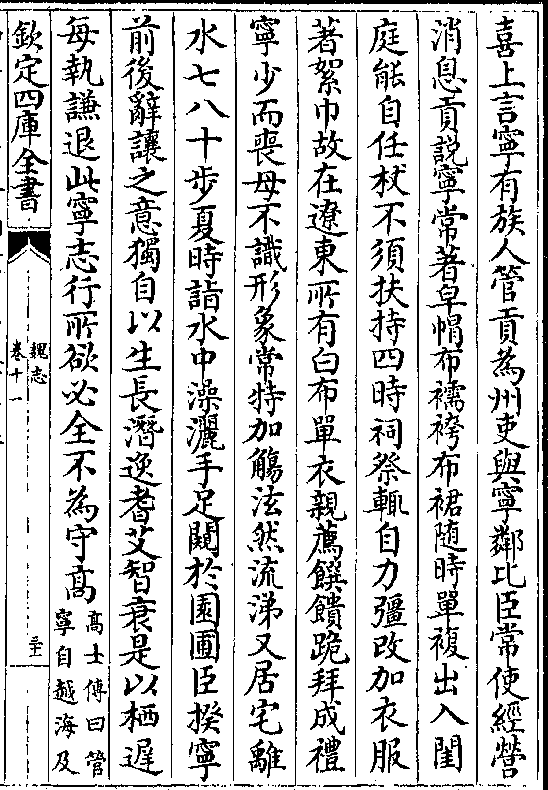 喜上言寧有族人管貢為州吏與寧鄰比臣常使經營
消息貢說寧常著皁帽布襦袴布裙随時單複出入閨
庭能自任杖不須扶持四時祠祭輒自力彊改加衣服
著絮巾故在遼東所有白布單衣親薦饌饋跪拜成禮
寧少而喪母不識形象常特加觴泫然流涕又居宅離
水七八十步夏時詣水中澡灑手足闚於園圃臣揆寧
前後辭讓之意獨自以生長潛逸耆艾智衰是以栖遲
每執謙退此寧志行所欲必全不為守高
高士傳曰管
寧自越海及
欽定四庫全書
魏志
卷十一